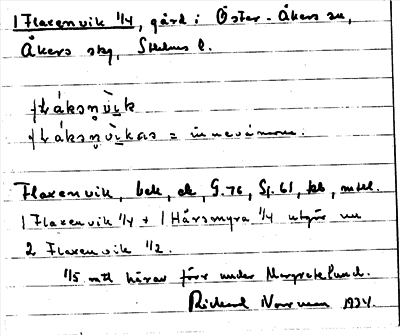 1 Flaxenvik 1/4, gård i Öster-Åkers sn,
Åkers skg, Sthlms l.
fláksn̥vìk
flàksn̥vìkas = innevånarna.
Flaxenvik, bok, ek, G.76, Sj.61, kb, mtl.
1 Flaxenvik 1/4 + 1 Hårsmyra 1/4 utgör nu
2 Flaxenvik 1/2.
1/5 mtl hörav förr under Margretelund.
Rickard Norrman 1934.